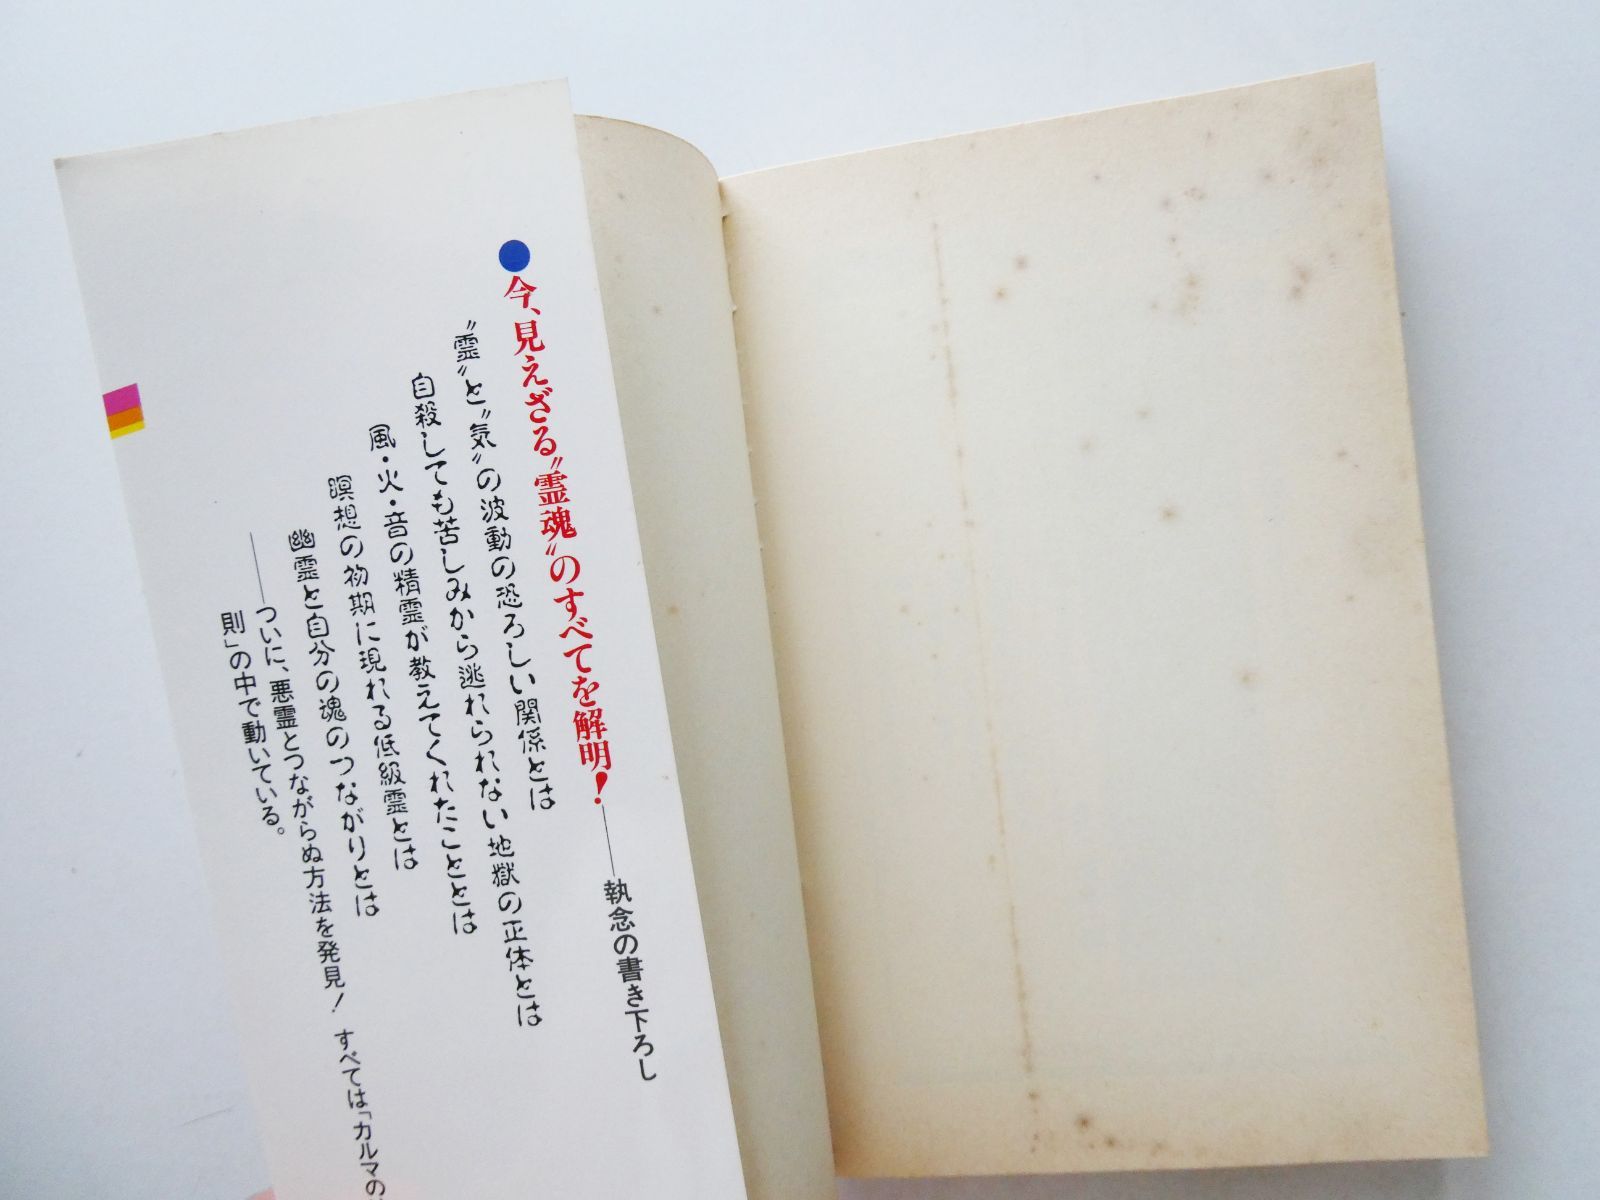 ●今、見えざる〝霊魂〟のすべてを解明！――執念の書き下ろし
〝霊〟と〝気〟の波動の恐ろしい関係とは
自殺しても苦しみから逃れられない地獄の正体とは
風・火・音の精霊が教えてくれたこととは
瞑想の初期に現れる低級霊とは
幽霊と自分の魂のつながりとは
――ついに、悪霊とつながらぬ方法を発見！　すべては「カルマの
則」の中で動いている。